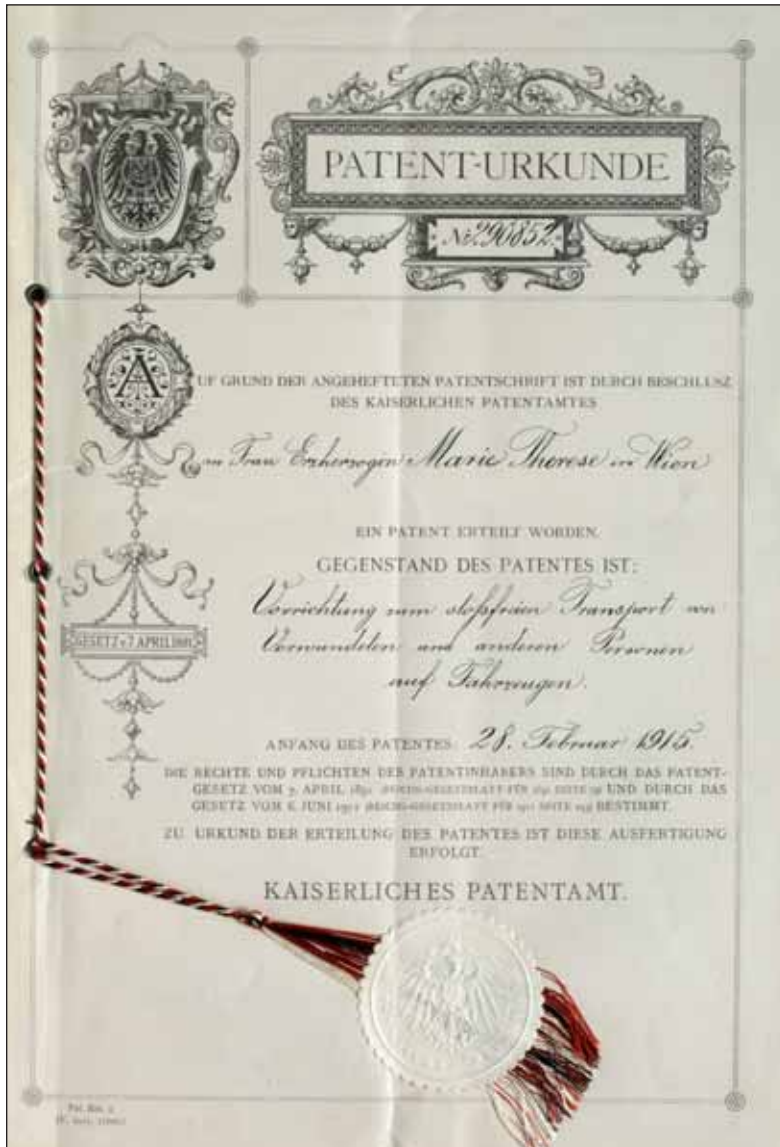 PATENT-URKUNDE
No 290852.
AUF GRUND DER ANGEHEFTETEN PATENTSCHRIFT IST DURCH BESCHLUSZ
DES KAISERLICHEN PATENTAMTES
Frau Erzherzogin Marie Therese in Wien
EIN PATENT ERTEILT WORDEN.
GEGENSTAND DES PATENTES IST:
Vorrichtung zum stoßfreien Transport von
Verwundeten und anderen Personen
auf Fahrzeugen.
GESETZ v. 7. APRIL 1891.
ANFANG DES PATENTES: 28. Februar 1915.
DIE RECHTE UND PFLICHTEN DES PATENTINHABERS SIND DURCH DAS PATENT-
GESETZ VOM 7. APRIL 1891 (REICHS-GESETZBLATT FÜR 1891 SEITE 79) UND DURCH DAS
GESETZ VOM 6. JUNI 1911 (REICHS-GESETZBLATT FÜR 1911 SEITE 243) BESTIMMT.
ZU URKUND DER ERTEILUNG DES PATENTES IST DIESE AUSFERTIGUNG
ERFOLGT.
KAISERLICHES PATENTAMT.